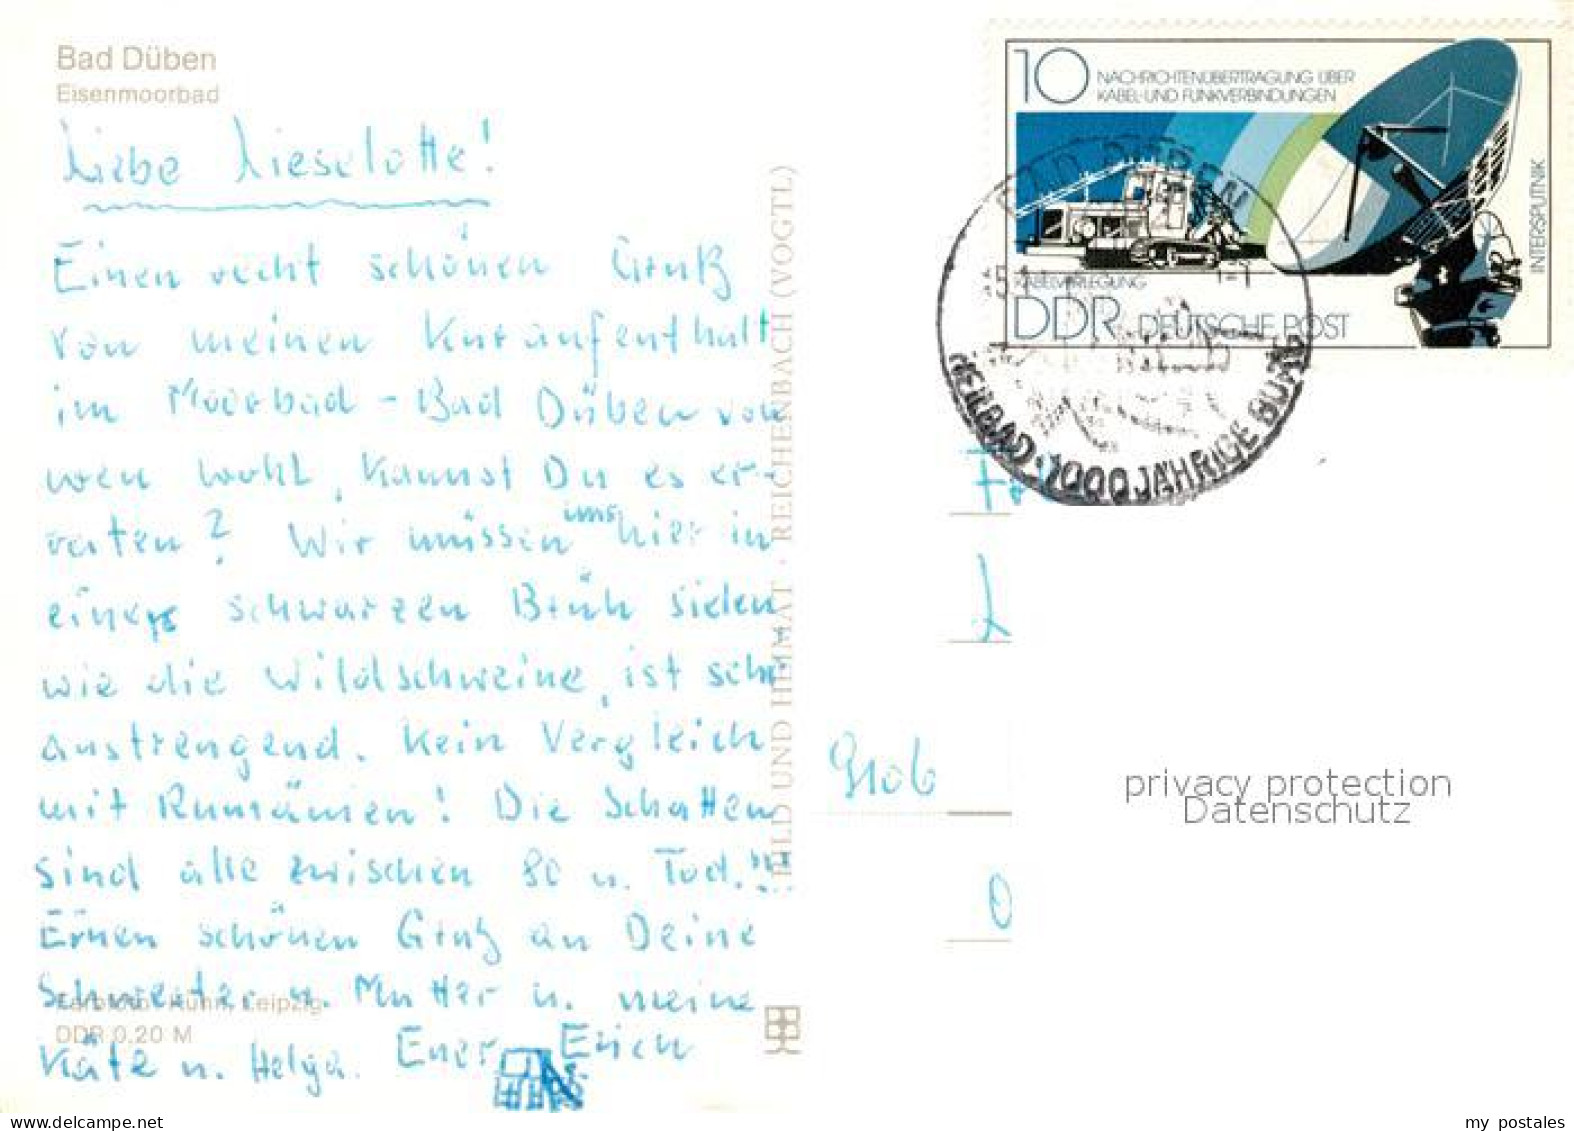 Bad Düben
Eisenmoorbad
Liebe Lieselotte!
Einen recht schönen Gruß
von meinen Kuraufenthalt
im Moorbad - Bad Düben von
wen wohl, kannst Du es er-
raten? Wir müssen uns hier in
einer schwarzen Brüh sielen
wie die Wildschweine, ist sehr
anstrengend. Kein Vergleich
mit Rumänien! Die Schatten
sind alle zwischen 80 u. Tod.!!!
Einen schönen Gruß an Deine
Schwester u. Mutter u. meine
Käte u. Helga. Euer Erich
Farbfoto: Kühn, Leipzig
DDR 0,20 M
BILD UND HEIMAT · REICHENBACH (VOGTL)
10 NACHRICHTENÜBERTRAGUNG ÜBER
KABEL- UND FUNKVERBINDUNGEN
INTERSPUTNIK
KABELVERLEGUNG
DDR DEUTSCHE POST
BAD DÜBEN
HEILBAD · 1000 JÄHRIGE BURG
privacy protection
Datenschutz
my postales